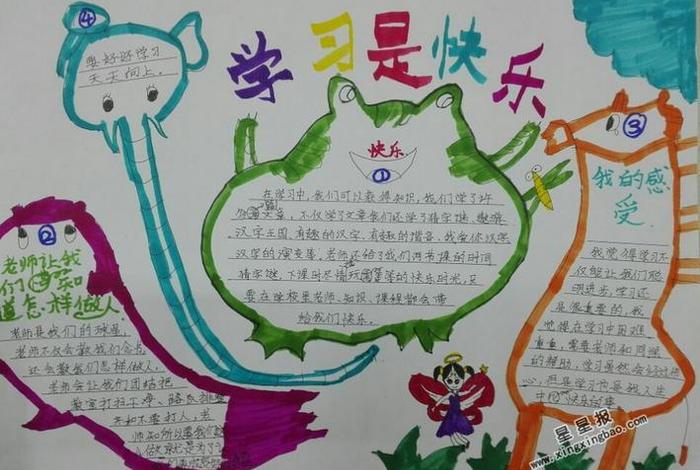 学习是快乐
④
要好好学习
天天向上。
快乐
①
在学习中,我们可以获得知识,我们学了许
不仅学习文章我们还学了猜字谜、遨游
汉字王国、有趣的汉字、有趣的谐音、我爱你汉字
汉字的演变等,老师还给了我们两节课的时间
猜字谜,下课时尽情玩 等的快乐时光,只
要在学校里老师、知识、课程都会带
给我们快乐。
②
老师让我
们
道怎样做人
老师不仅会教我们
还会教我们怎样做人,
老师会让我们团结把
教室打扫干净、路队排整
齐和不要打人,老
师
③
我的感
受
我觉得学习不
仅能让我们聪
明进步,学习还
是很重要的,我
觉得在学习中困难
重重,需要老师和同学
的帮助,学习虽然会
心,但是学习也是我人生
中
星星报
www.xingxingbao.com